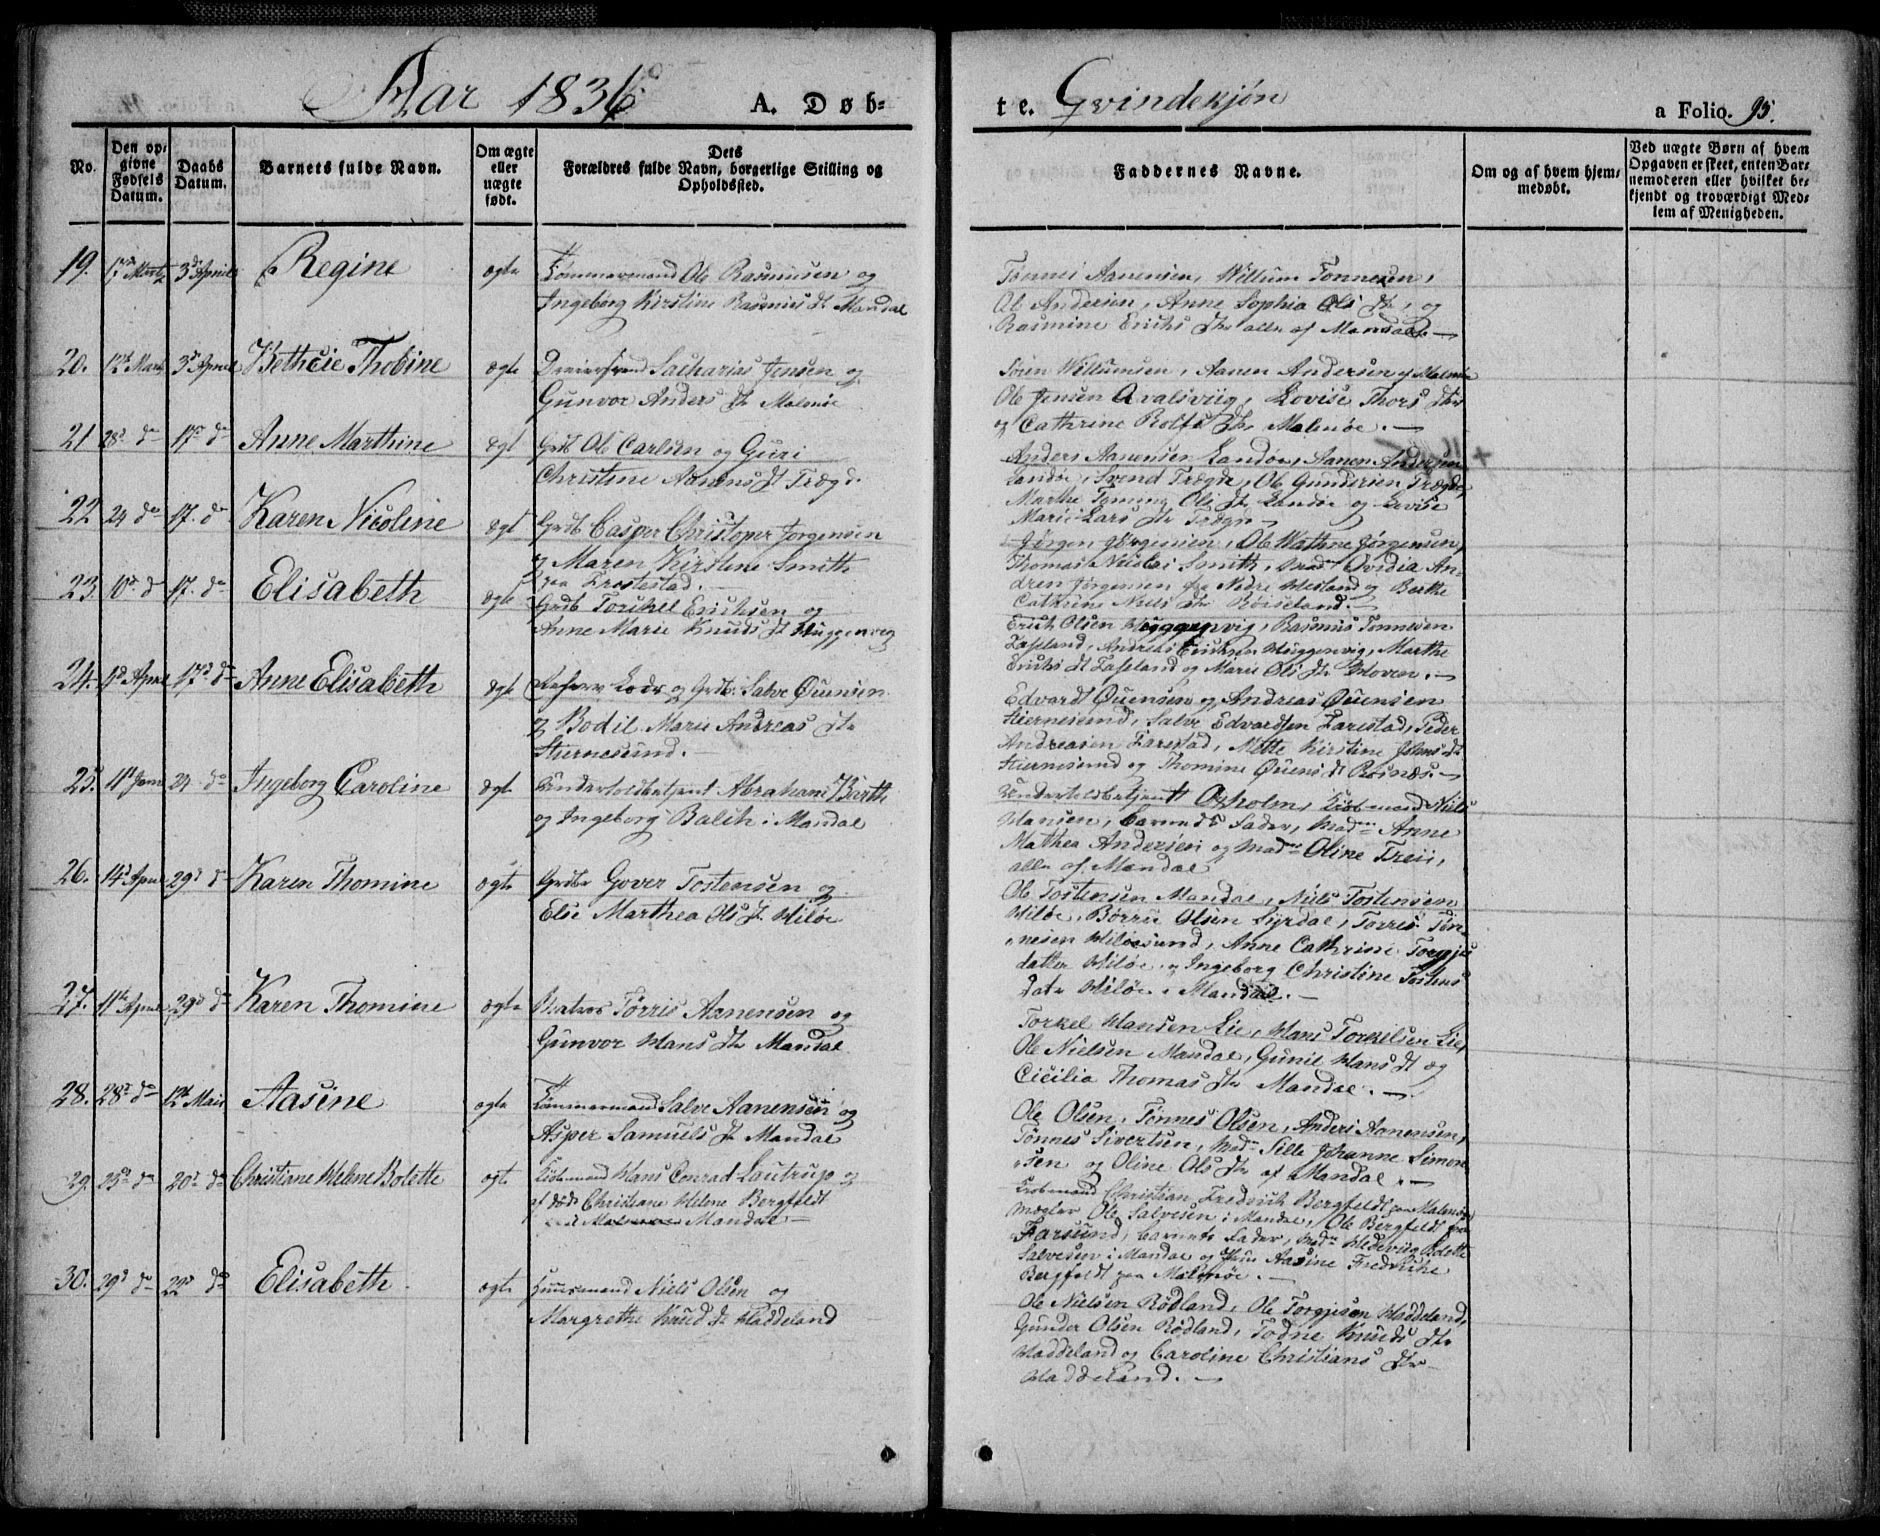 Aar 1836
A. Døb-
te. Qvindekjøn
a Folio. 95.
No.
Den op-
givne
Fødsels
Datum.
Daabs
Datum.
Barnets fulde Navn.
Om ægte
eller
uægte
født.
Dets
Forældres fulde Navn, borgerlige Stilling og
Opholdssted.
Faddernes Navne.
Om og af hvem hjem-
medøbt.
Ved uægte Børn af hvem
Opgaven er skeet, enten Bar-
nemoderen eller hvilket be-
kjendt og troværdigt Med-
lem af Menigheden.
19. 17d Martz 3d April Regine ægte Tømmermand Ole Rasmusen og
Ingeborg Kirstine Rasmus Dtr Mandal
Tønnes Aanensen, Willum Tønnesen,
Ole Andersen, Anne Sophia Ols Dtr, og
Rasmine Erichs Dtr alle af Mandal. —
20. 12t Martz 3d April Thobine ægte Sacharias Jensen og
Gunvor Anders Dtr Malmøe
Sören Willumsen, Aanen Andersen af Malmøe
Ole Jensen Qvalsviig, Lovise Thors Dtr
og Cathrine Rolfs Dtr Malmøe. —
21 28d do 17d do Anne Marthine ægt Grdb Ole Carlsen og Guri
Christine Aanens Dt Trægd
Anders Aanensen Landøe, Aanen Andersen
Landøe, Svend Trægde, Ole Gundersen Trægde,
Marthe Ols Dtr Landøe og Lovise
Marie Lars Dtr Trægde —
22 24 do 17. do Karen Nicoline ægt Grdb Casper Christopher Jørgensen
og Maren Kirstine Smith
paa
Jørgen Jørgensen, Ole Mathene Jørgensen,
Thomas Nicolai Smith, Ovidia An-
dren Jørgensen fra Nedre og Berthe
Cathrine Niels Dtr Røiseland. —
23 10d do 17. do Elisabeth ægte Grdb Torikel Erichsen og
Anne Marie Knuds Dt Huggenvig
Erich Olsen Huggenvig, Rasmus Tønnesen
Faseland, Andreas Erichsen Huggenvig, Marthe
Erichs Dt Faseland og Marie Ols Dtr Hoven. —
24. April 17d do Anne Elisabeth ægte Lods og Grdb. Salve Øuensen
og Bodil Marie Andreas Dtr
Stiernesund. —
Edvardt Øuensen og Andreas Øuensen
Stiernesund, Salve Edvardsen Farestad, Peder
Andreasen Farestad, Mette Kirstine Johns Dt
Stiernesund og Thomine Øuens Dt Rosnæs. —
25. 11t 24 do Ingeborg Caroline ægte Undertoldbetjent Abraham Barth
og Ingeborg Balch i Mandal
Undertoldbetjent Oxholm, Kiøbmand Niels
Hansen, barnets Fader, Madme Anne
Mathea Andersen og Madme Oline
alle af Mandal
26. 14d April 29d do Karen Thomine ægte Grdbr Gover Tostensen og
Else Marthea Ols Dtr Hiløe
Ole Tostensen Mandal, Niels Tostensen
Hiløe, Børre Olsen Syrdal, Torris Tøn-
nesen Hiløesund, Anne Cathrine Torgjus
datter Hiløe og Ingeborg Christine Tostens
Datr Hiløe i Mandal. —
27. 11te April 29d do Karen Thomine ægte Matros Torris Aanensen og
Gunvor Hans Dtr Mandal
Torkel Hansen Lie, Hans Torkelsen Lie,
Ole Nielsen Mandal, Gunil Hans Dt og
Cicilia Thomas Dtr Mandal. —
28. 28d do 12te Mai Aasine ægte Tømmermand Salve Aanensen og
Asper Samuels Dtr Mandal
Ole Olsen, Tønnes Olsen, Anders Aanensen,
Tønnes Sivertsen, Madme Sille Johanne Simon-
sen og Oline Ols Dtr af Mandal. —
29. 25d do 20d do Christiane Helene Bolette ægte Kiøbmand Hans Conrad Lautrup og
Christiane Helene Bergfeldt
Mandal —
Kiøbmand Christian Fredrich Bergfeldt paa Malmøe
Mægler Ole Salvesen i Mandal, Ole Bergfeldt fra
Farsund, barnets Fader, Madme Hedevig Bolette
Salvesen i Mandal og Jfru Aasine Fredrikke
Bergfeldt paa Malmøe. —
30. 29d do 22d do Elisabeth ægte Huusmand Niels Olsen og
Margrethe Knud Dt Haddeland
Ole Nielsen Rødland, Ole Torgjusen Haddeland,
Gunder Olsen Rødland, Todne Knuds Dtr
Haddeland og Caroline Christians Dtr
Haddeland. —